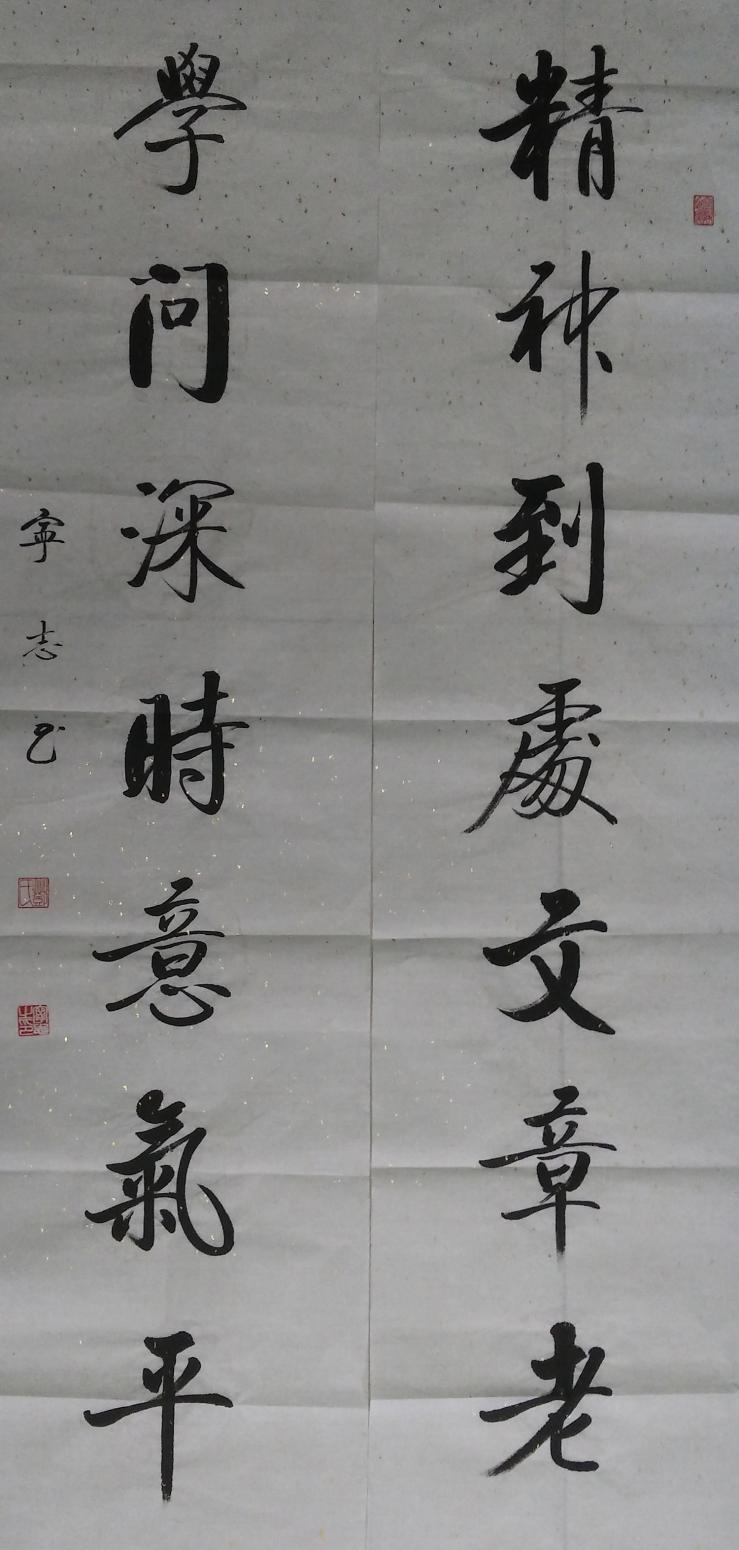 精神到處文章老
學問深時意氣平
寧志書